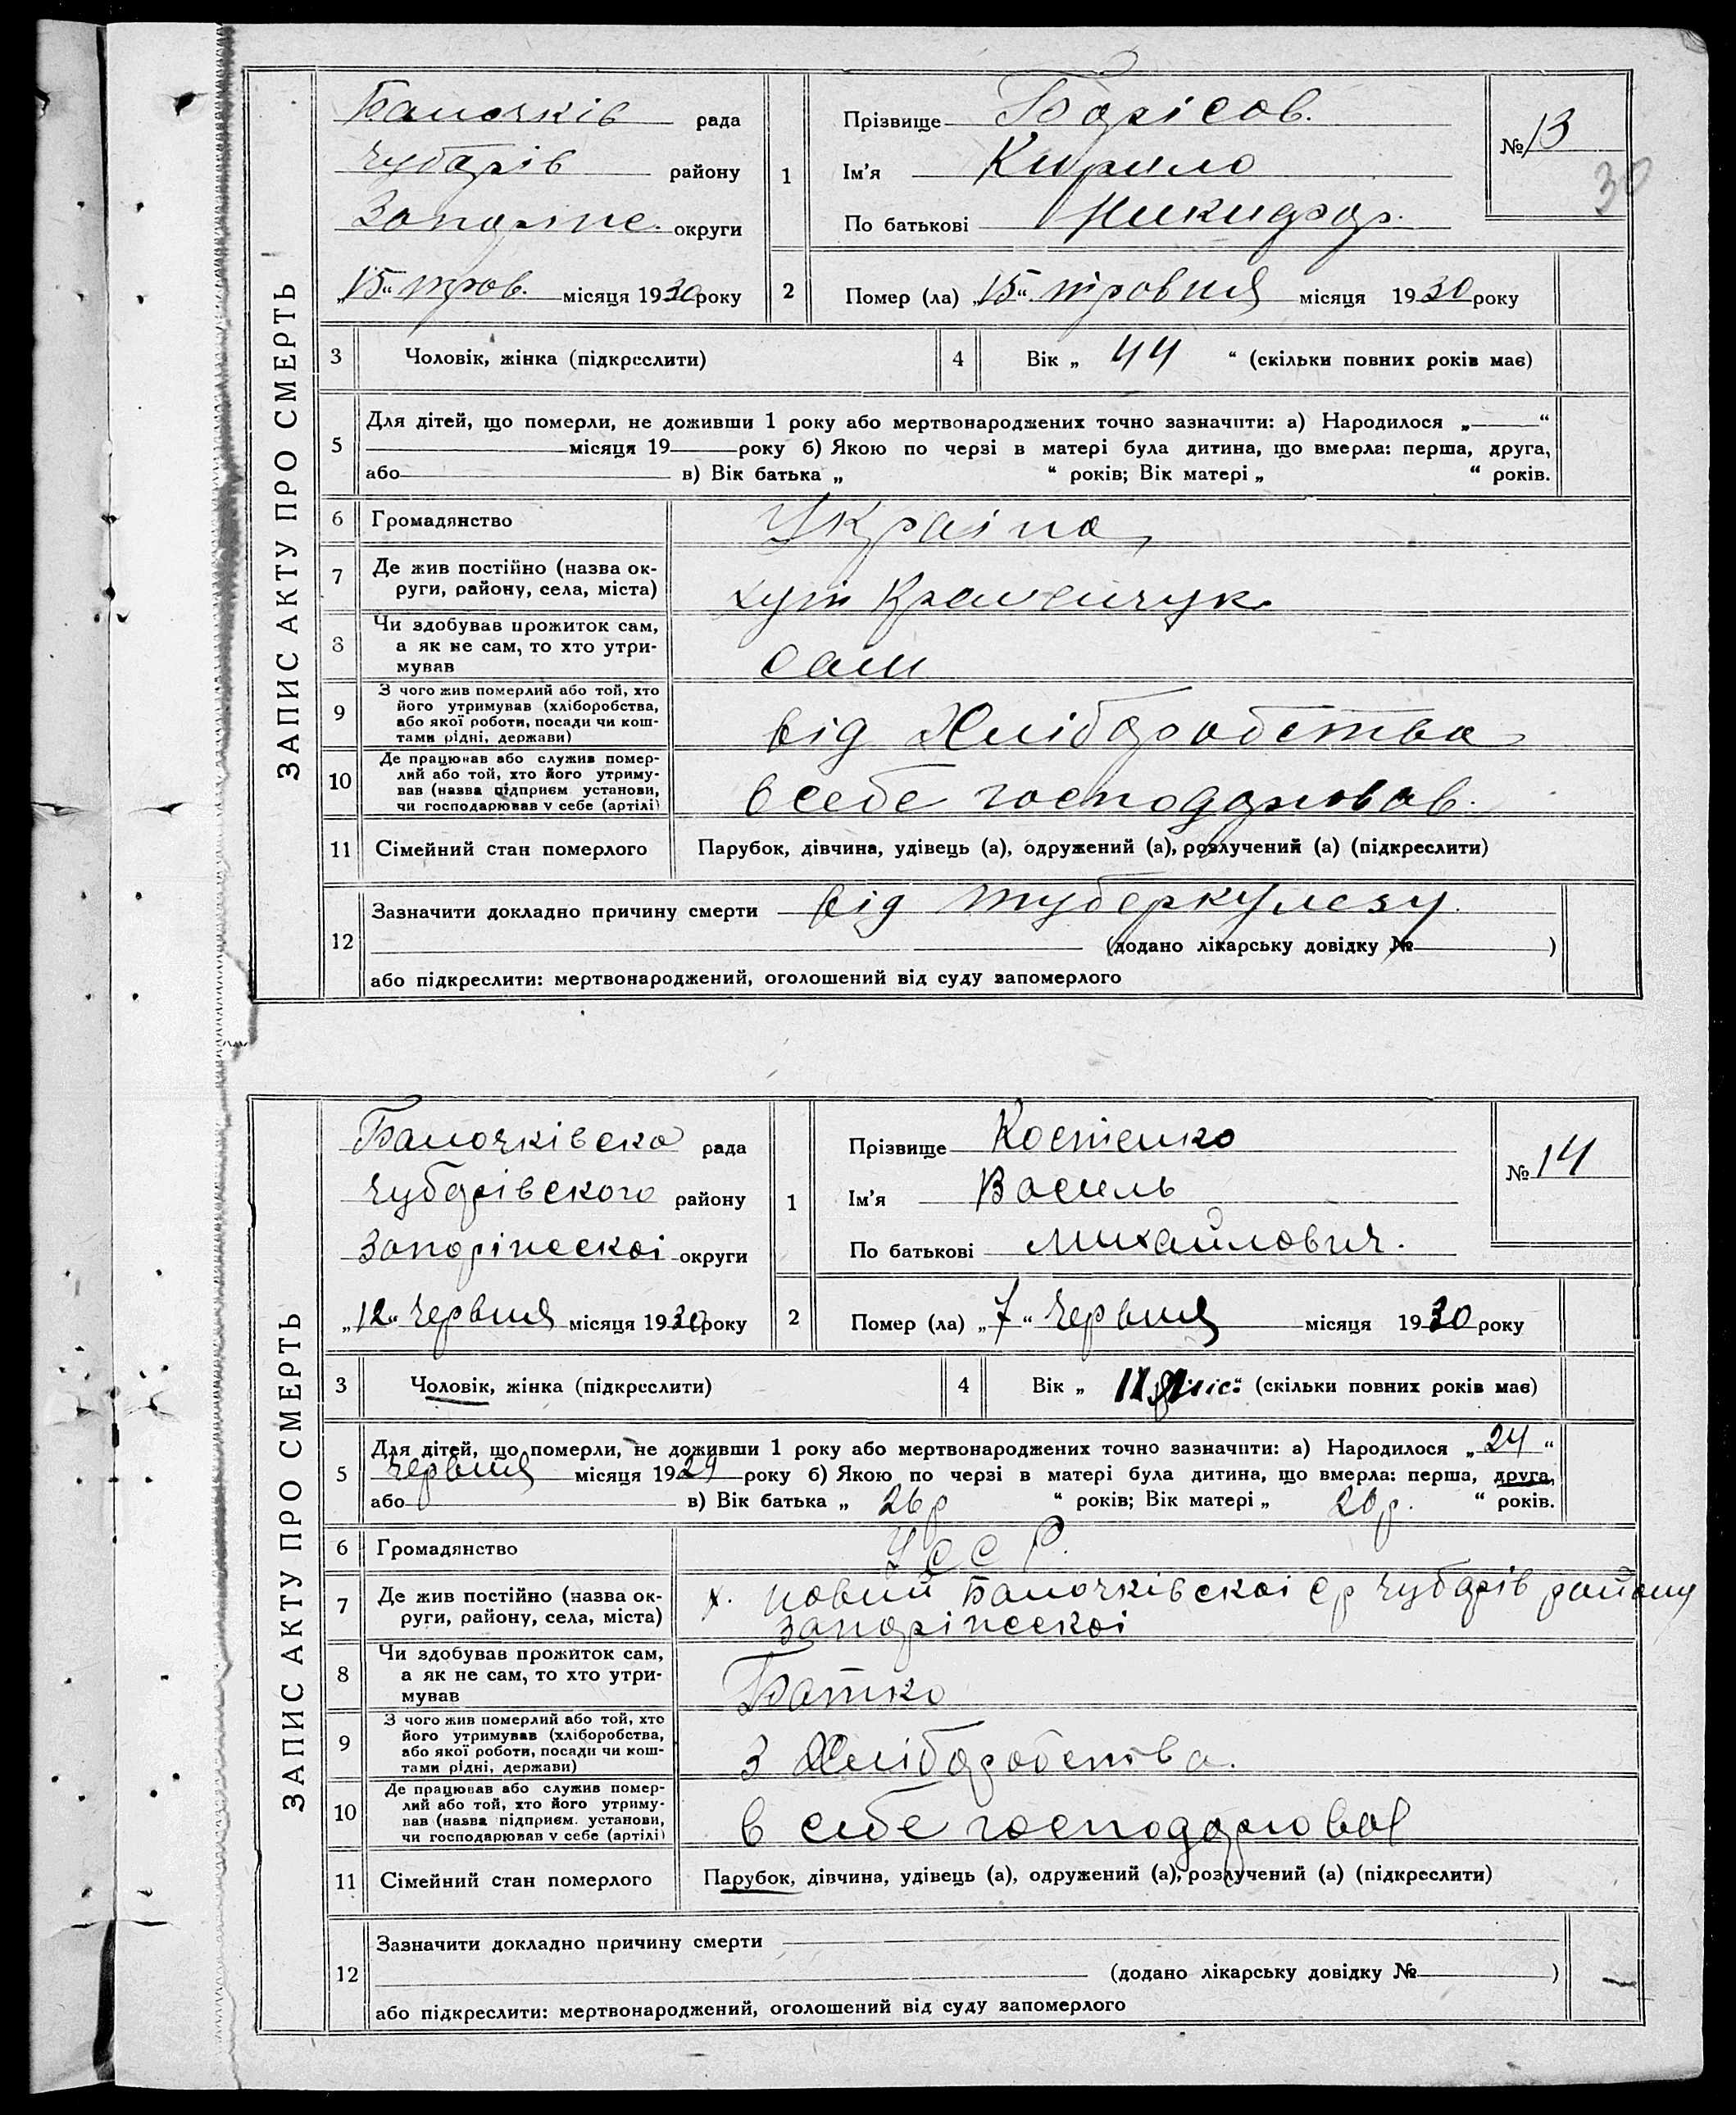 ЗАПИС АКТУ ПРО СМЕРТЬ
Балочків рада
Чубарів району
Запоріже. округи
„15“ трав. місяця 1930 року
1
Прізвище Борісов.
Ім'я Кирило
По батькові Никифор.
№ 13
30
2 Помер (ла) „15“ травня місяця 1930 року
3 Чоловік, жінка (підкреслити)
4 Вік „ 44 “ (скільки повних років має)
5 Для дітей, що померли, не доживши 1 року або мертвонароджених точно зазначити: а) Народилося „ “
місяця 19 року б) Якою по черзі в матері була дитина, що вмерла: перша, друга,
або в) Вік батька „ “ років; Вік матері „ “ років.
6 Громадянство Україна
7 Де жив постійно (назва ок-
руги, району, села, міста) хут Кременчук
8 Чи здобував прожиток сам,
а як не сам, то хто утри-
мував сам
9 З чого жив померлий або той, хто
його утримував (хліборобства,
або якої роботи, посади чи кош-
тами рідні, держави) від Хліборобства
10 Де працював або служив помер-
лий або той, хто його утриму-
вав (назва підприєм установи,
чи господарював у себе (артілі) в себе господарював.
11 Сімейний стан померлого Парубок, дівчина, удівець (а), одружений (а), розлучений (а) (підкреслити)
12 Зазначити докладно причину смерти від туберкулезу.
(додано лікарську довідку № )
або підкреслити: мертвонароджений, оголошений від суду запомерлого
ЗАПИС АКТУ ПРО СМЕРТЬ
Балочківска рада
Чубарівского району
Запоріжескоі округи
„12“ червня місяця 1930 року
1
Прізвище Костенко
Ім'я Василь
По батькові Михайлович.
№ 14
2 Помер (ла) „7“ червня місяця 1930 року
3 Чоловік, жінка (підкреслити)
4 Вік „ 11 міс “ (скільки повних років має)
5 Для дітей, що померли, не доживши 1 року або мертвонароджених точно зазначити: а) Народилося „ 24 “
червня місяця 1929 року б) Якою по черзі в матері була дитина, що вмерла: перша, друга,
або в) Вік батька „ 26 р “ років; Вік матері „ 20 р. “ років.
6 Громадянство УССР.
7 Де жив постійно (назва ок-
руги, району, села, міста) х. новий Балочківскоі ср Чубарів району
запоріжескоі
8 Чи здобував прожиток сам,
а як не сам, то хто утри-
мував Батко
9 З чого жив померлий або той, хто
його утримував (хліборобства,
або якої роботи, посади чи кош-
тами рідні, держави) З Хліборобства.
10 Де працював або служив помер-
лий або той, хто його утриму-
вав (назва підприєм. установи,
чи господарював у себе (артілі) в себе господарював
11 Сімейний стан померлого Парубок, дівчина, удівець (а), одружений (а), розлучений (а) (підкреслити)
12 Зазначити докладно причину смерти
(додано лікарську довідку № )
або підкреслити: мертвонароджений, оголошений від суду запомерлого